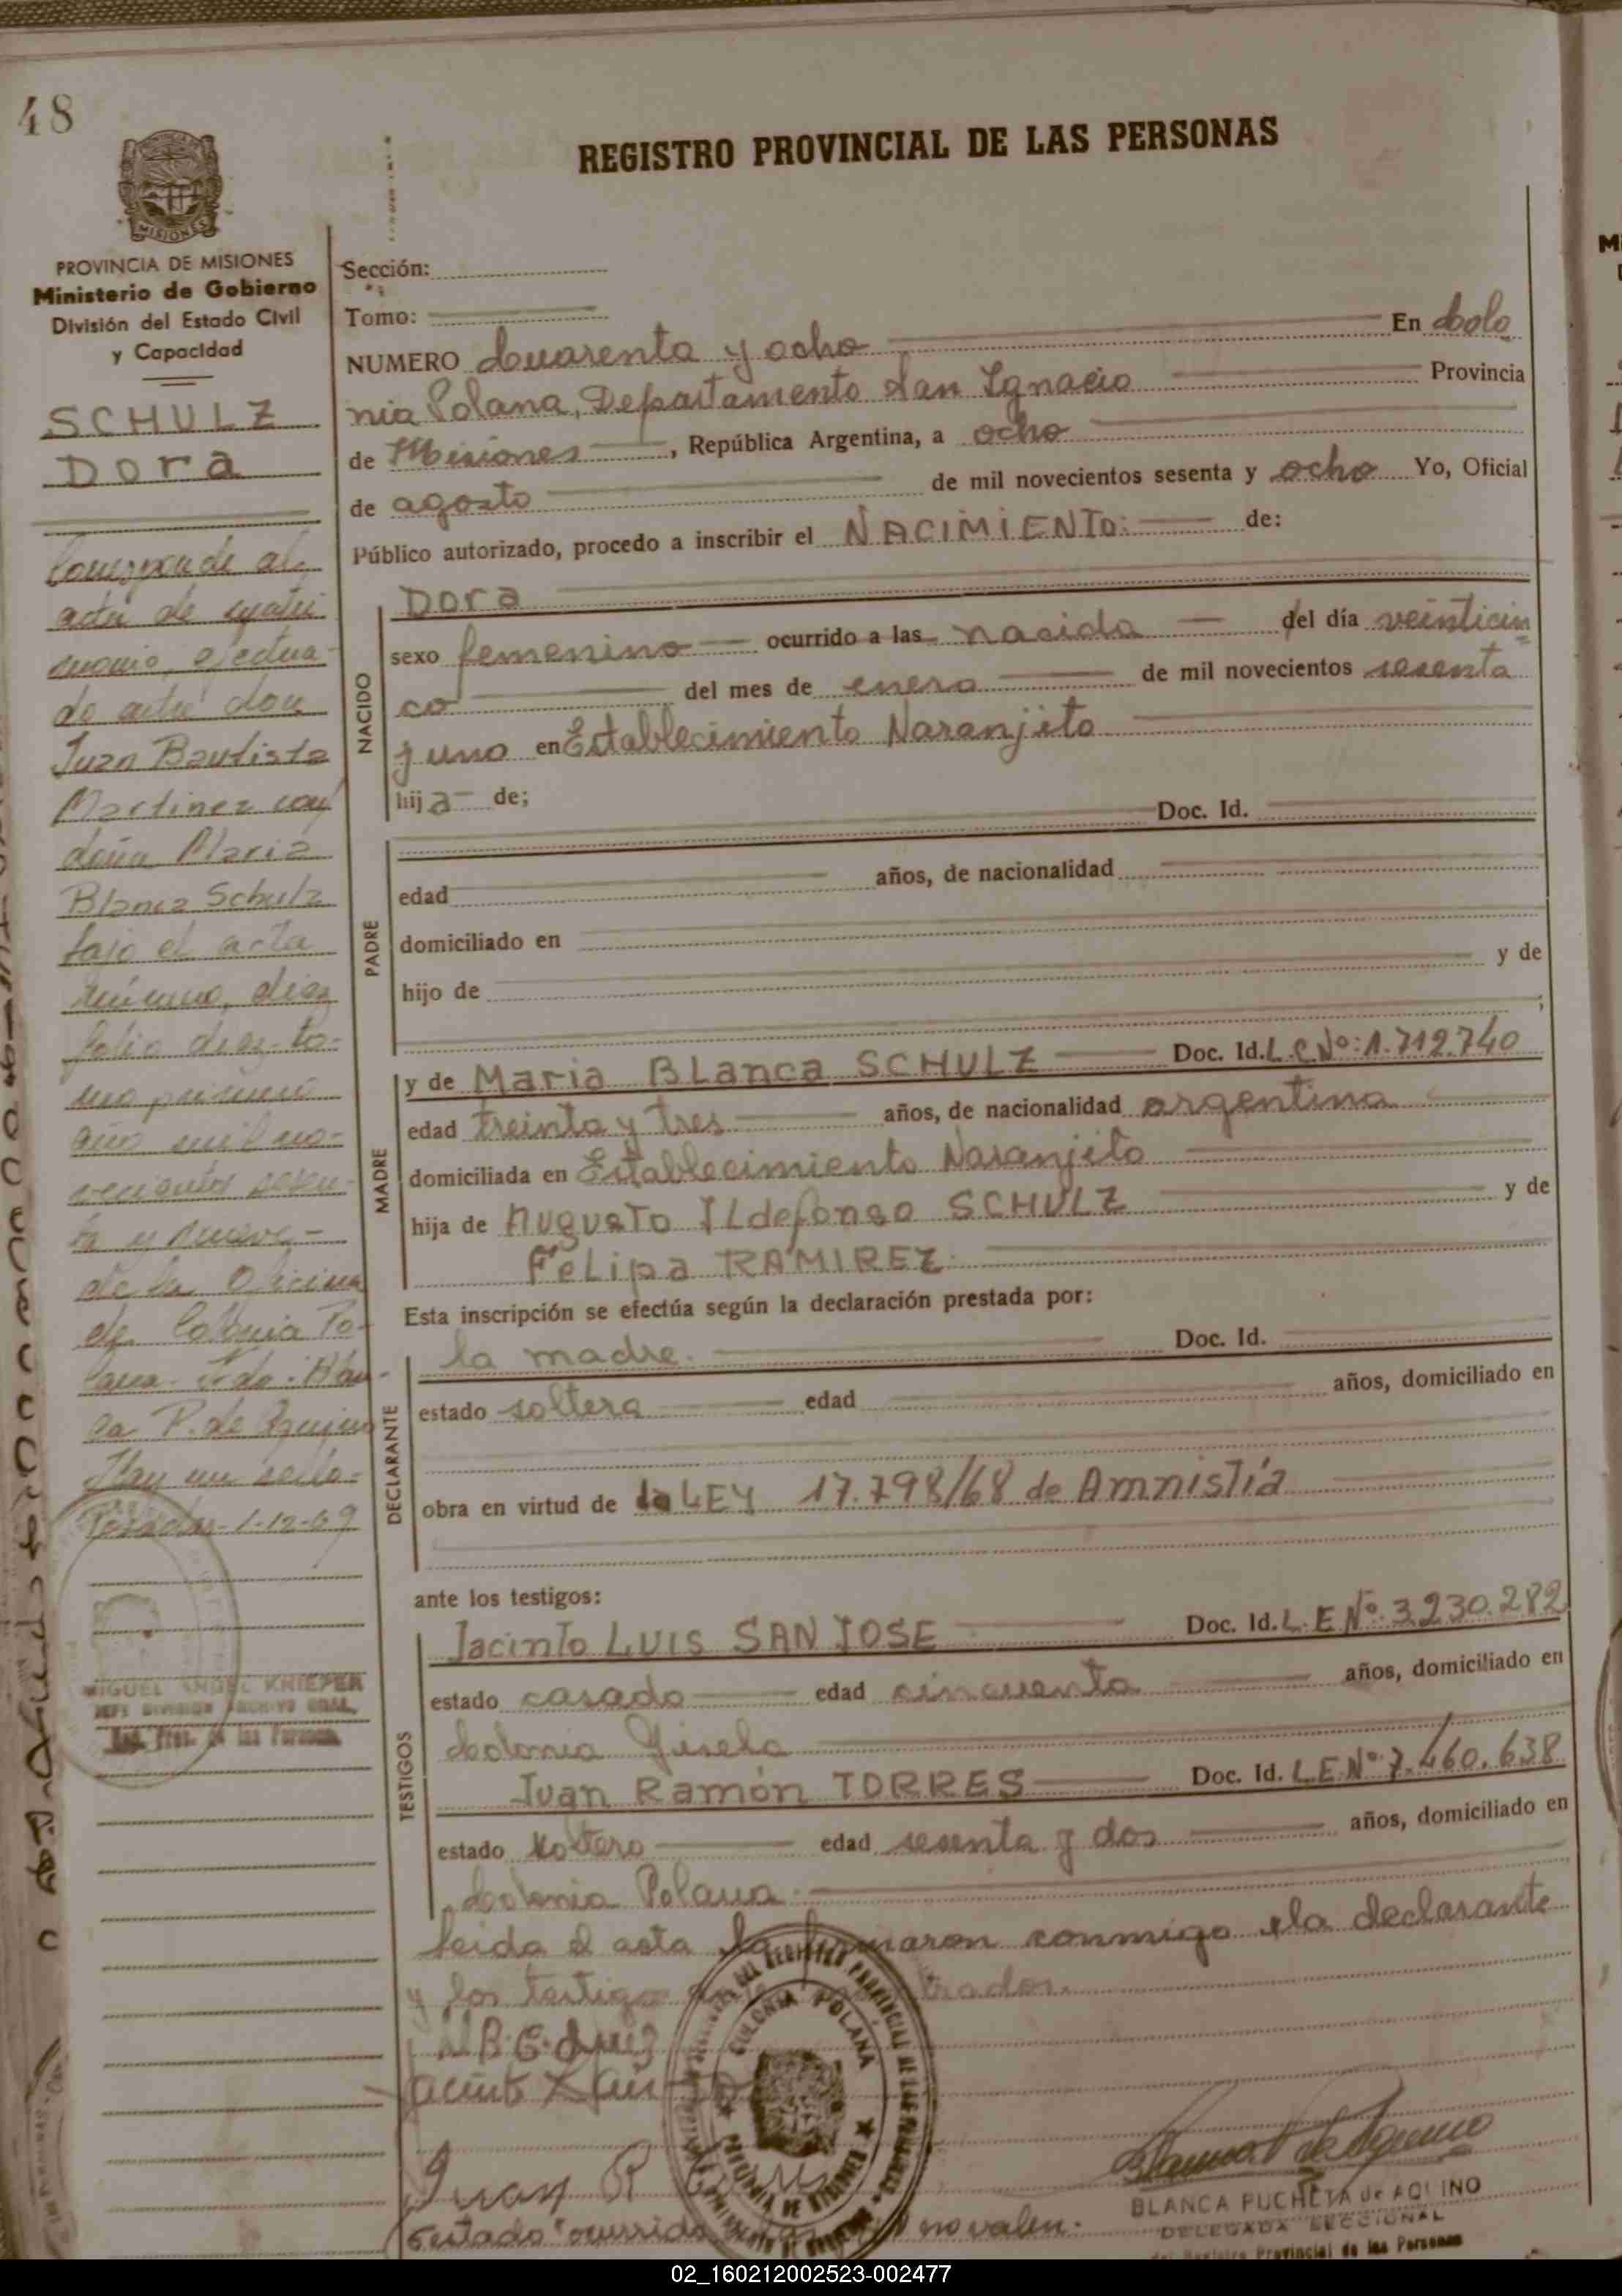 48
REGISTRO PROVINCIAL DE LAS PERSONAS
MISIONES
PROVINCIA DE MISIONES
Ministerio de Gobierno
División del Estado Civil
y Capacidad
SCHULZ
Dora
Corresponde al
acta de matri
monio, efectua-
do entre don
Juan Bautista
Martinez con
doña Maria
Blanca Schulz
bajo el acta
número, diez
folio diez-to-
mo primero
año mil no-
vecientos sesen-
ta y nueve-
de la Oficina
de Colonia Po-
lana- Fdo: Blan-
ca P. de Aquino
Hay un sello-
Posadas-1-12-69
MIGUEL ANGEL KNIEPER
JEFE DIVISION ARCHIVO GRAL.
Reg. Prov. de las Personas
Sección:
Tomo:
NUMERO Cuarenta y ocho En Colo
nia Polana, Departamento San Ignacio Provincia
de Misiones, República Argentina, a ocho
de agosto de mil novecientos sesenta y ocho Yo, Oficial
Público autorizado, procedo a inscribir el NACIMIENTO: de:
NACIDO
Dora
sexo femenino ocurrido a las nacida del día veinticin
co del mes de enero de mil novecientos sesenta
y uno en Establecimiento Naranjito
hija de;
PADRE
Doc. Id.
edad años, de nacionalidad
domiciliado en
hijo de y de
;
MADRE
y de Maria Blanca SCHULZ Doc. Id. L.C.Nº: 1.712.740
edad treinta y tres años, de nacionalidad argentina
domiciliada en Establecimiento Naranjito
hija de Augusto ILdefonso SCHULZ y de
FeLipa RAMIREZ.
Esta inscripción se efectúa según la declaración prestada por:
DECLARANTE
la madre. Doc. Id.
estado soltera edad años, domiciliado en
obra en virtud de la LEY 17.798/68 de Amnistía
ante los testigos:
TESTIGOS
Jacinto LUIS SAN JOSE Doc. Id. L.E Nº: 3.230.282
estado casado edad cincuenta años, domiciliado en
Colonia Gisela
Juan Ramón TORRES Doc. Id. L.E.Nº: 7.460.638
estado soltero edad sesenta y dos años, domiciliado en
Colonia Polana.
Leida el acta la firmaron conmigo la declarante
y los testigos
COLONIA POLANA
PROVINCIA DE MISIONES
Juan R
Testado "ocurrido no valen.
BLANCA PUCHETA de AQUINO
DELEGADA SECCIONAL
del Registro Provincial de las Personas
02_160212002523-002477